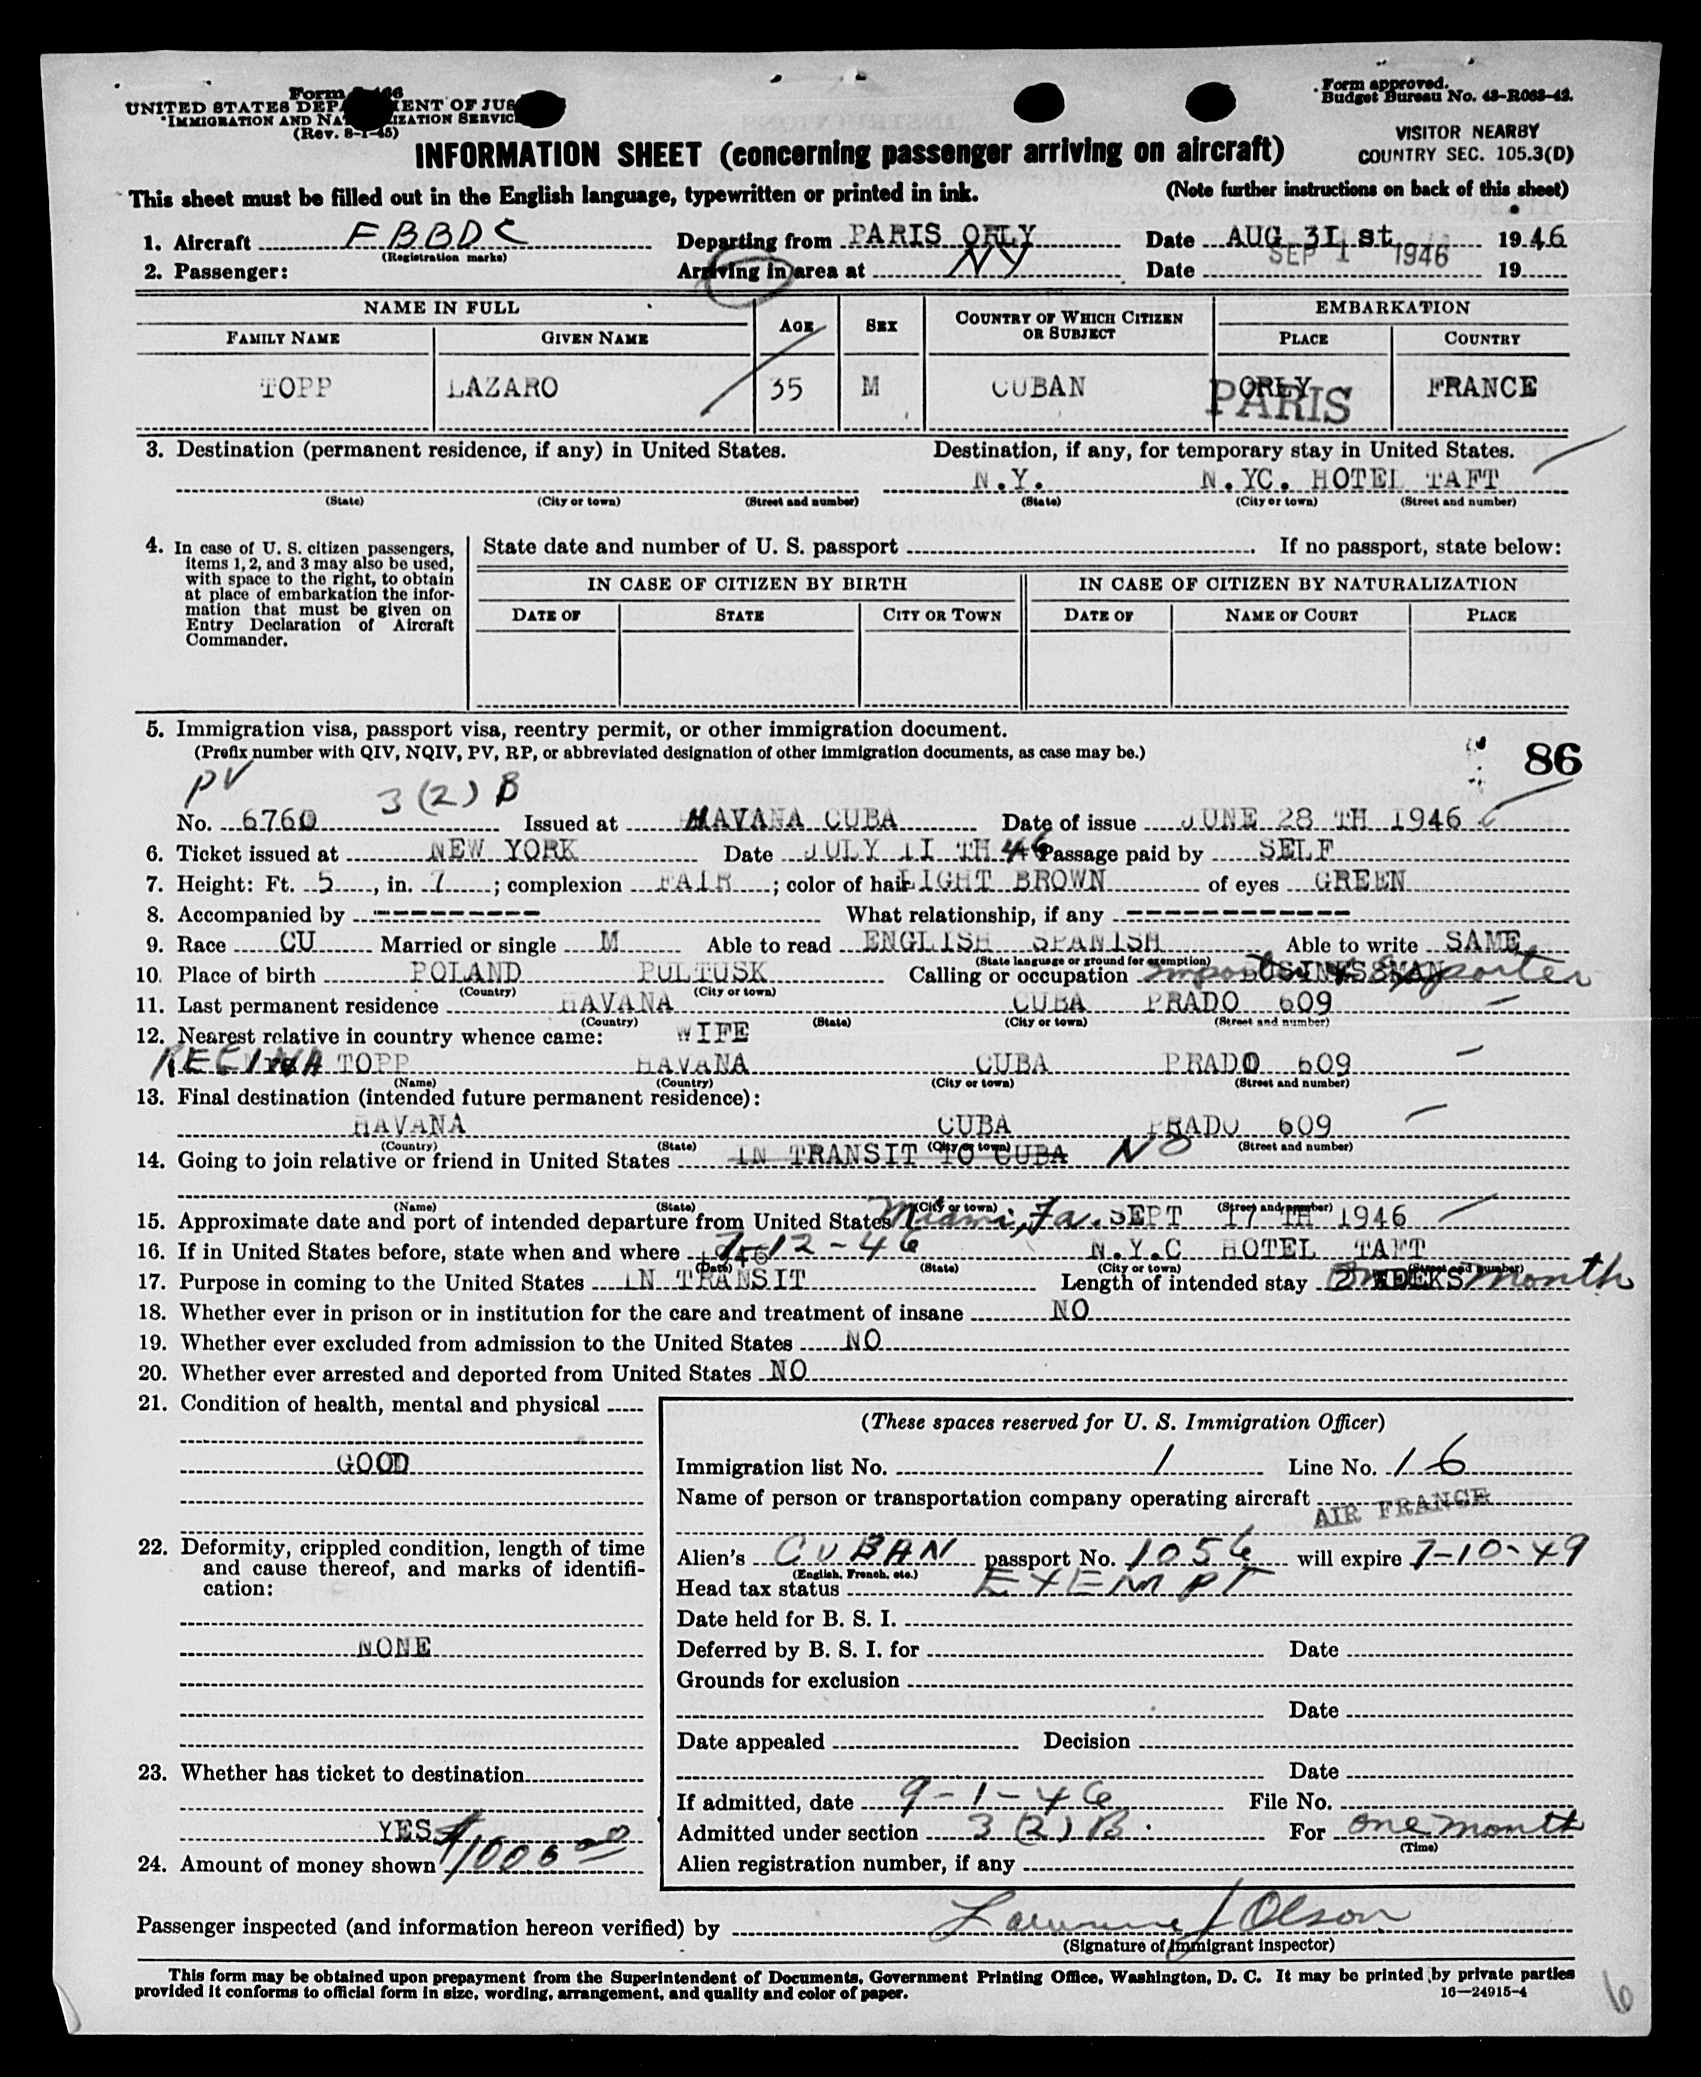 Form
UNITED STATES DEP MENT OF JUS
IMMIGRATION AND NA IZATION SERVIC
(Rev. 8-1-45)
Form approved.
Budget Bureau No. 43-R063-42.
VISITOR NEARBY
COUNTRY SEC. 105.3(D)
INFORMATION SHEET (concerning passenger arriving on aircraft)
This sheet must be filled out in the English language, typewritten or printed in ink. (Note further instructions on back of this sheet)
1. Aircraft FBBDC Departing from PARIS ORLY Date AUG 31 st 1946
(Registration marks)
2. Passenger: Arriving in area at NY Date SEP 1 1946 19
NAME IN FULL AGE SEX COUNTRY OF WHICH CITIZEN OR SUBJECT EMBARKATION
FAMILY NAME GIVEN NAME PLACE COUNTRY
TOPP LAZARO 35 M CUBAN ORLY FRANCE
PARIS
3. Destination (permanent residence, if any) in United States. Destination, if any, for temporary stay in United States.
N.Y. N.YC. HOTEL TAFT
(State) (City or town) (Street and number) (State) (City or town) (Street and number)
4. In case of U. S. citizen passengers, items 1, 2, and 3 may also be used, with space to the right, to obtain at place of embarkation the information that must be given on Entry Declaration of Aircraft Commander.
State date and number of U. S. passport If no passport, state below:
IN CASE OF CITIZEN BY BIRTH IN CASE OF CITIZEN BY NATURALIZATION
DATE OF STATE CITY OR TOWN DATE OF NAME OF COURT PLACE
5. Immigration visa, passport visa, reentry permit, or other immigration document.
(Prefix number with QIV, NQIV, PV, RP, or abbreviated designation of other immigration documents, as case may be.)
86
PV 3(2)B
No. 6760 Issued at HAVANA CUBA Date of issue JUNE 28 TH 1946
6. Ticket issued at NEW YORK Date JULY II TH 46 Passage paid by SELF
7. Height: Ft. 5, in. 7; complexion FAIR; color of hair LIGHT BROWN of eyes GREEN
8. Accompanied by ---------- What relationship, if any -------------
9. Race CU Married or single M Able to read ENGLISH SPANISH Able to write SAME
(State language or ground for exemption)
10. Place of birth POLAND PULTUSK Calling or occupation BUSINESSMAN Importer & Exporter
(Country) (City or town)
11. Last permanent residence HAVANA CUBA PRADO 609
(Country) (State) (City or town) (Street and number)
12. Nearest relative in country whence came: WIFE
REGINA TOPP HAVANA CUBA PRADO 609
(Name) (Country) (City or town) (Street and number)
13. Final destination (intended future permanent residence):
HAVANA CUBA PRADO 609
(Country) (State) (City or town) (Street and number)
14. Going to join relative or friend in United States IN TRANSIT TO CUBA NO
(Name) (State) (City or town) (Street and number)
15. Approximate date and port of intended departure from United States Miami, Fla. SEPT 17 TH 1946
16. If in United States before, state when and where 7-12-46 N.Y.C HOTEL TAFT
(Date) (State) (City or town) (Street and number)
17. Purpose in coming to the United States IN TRANSIT Length of intended stay 2 WEEKS One month
18. Whether ever in prison or in institution for the care and treatment of insane NO
19. Whether ever excluded from admission to the United States NO
20. Whether ever arrested and deported from United States NO
21. Condition of health, mental and physical
GOOD
22. Deformity, crippled condition, length of time and cause thereof, and marks of identification:
NONE
23. Whether has ticket to destination
YES
24. Amount of money shown $1000.00
(These spaces reserved for U. S. Immigration Officer)
Immigration list No. 1 Line No. 16
Name of person or transportation company operating aircraft AIR FRANCE
Alien's CUBAN passport No. 1056 will expire 7-10-49
(English, French, etc.)
Head tax status EXEMPT
Date held for B. S. I.
Deferred by B. S. I. for Date
Grounds for exclusion
Date
Date appealed Decision
Date
If admitted, date 9-1-46 File No.
Admitted under section 3(2)B For One month
(Time)
Alien registration number, if any
Passenger inspected (and information hereon verified) by Lawrence J Olson
(Signature of immigrant inspector)
This form may be obtained upon prepayment from the Superintendent of Documents, Government Printing Office, Washington, D. C. It may be printed by private parties
provided it conforms to official form in size, wording, arrangement, and quality and color of paper. 16—24915-4
6